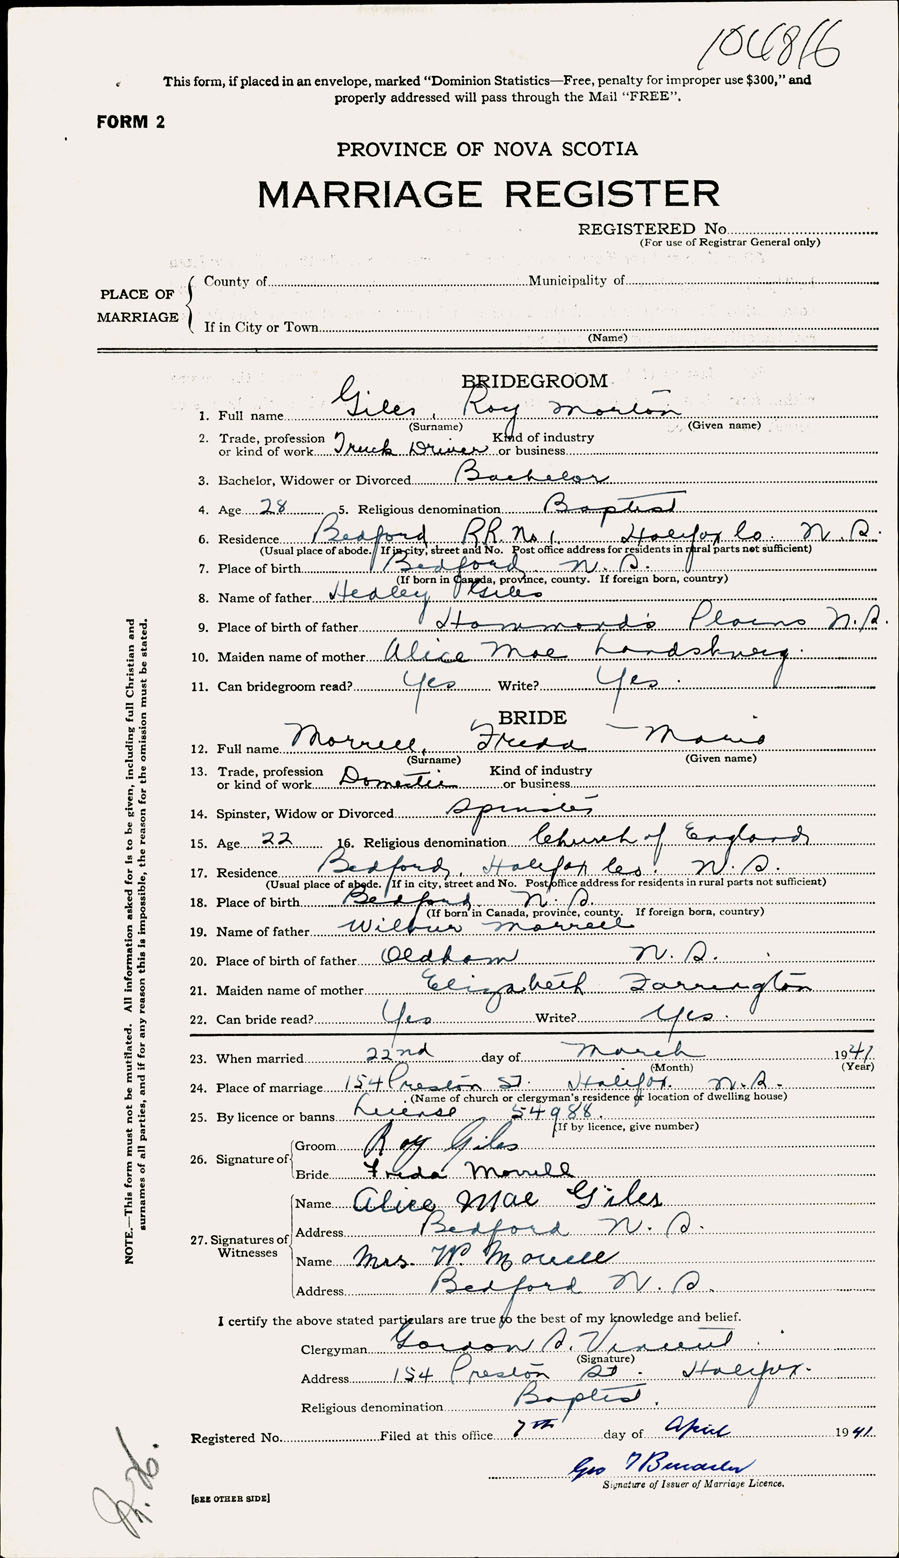 This form, if placed in an envelope, marked “Dominion Statistics—Free, penalty for improper use $300,” and
properly addressed will pass through the Mail “FREE”.
FORM 2
PROVINCE OF NOVA SCOTIA
MARRIAGE REGISTER
REGISTERED No
(For use of Registrar General only)
PLACE OF MARRIAGE
County of Municipality of
If in City or Town
(Name)
BRIDEGROOM
1. Full name Giles, Roy Morton
(Surname) (Given name)
2. Trade, profession or kind of work Truck Driver Kind of industry or business
3. Bachelor, Widower or Divorced Bachelor
4. Age 28 5. Religious denomination Baptist
6. Residence Bedford R.R. No 1. Halifax Co. N.S.
(Usual place of abode. If in city, street and No. Post office address for residents in rural parts not sufficient)
7. Place of birth Bedford N.S.
(If born in Canada, province, county. If foreign born, country)
8. Name of father Hedley Giles
9. Place of birth of father Hammonds Plains N.S.
10. Maiden name of mother Alice Mae Landsburg.
11. Can bridegroom read? Yes Write? Yes.
BRIDE
12. Full name Morrell, Freda Marie
(Surname) (Given name)
13. Trade, profession or kind of work Domestic Kind of industry or business
14. Spinster, Widow or Divorced Spinster
15. Age 22 16. Religious denomination Church of England
17. Residence Bedford, Halifax Co. N.S.
(Usual place of abode. If in city, street and No. Post office address for residents in rural parts not sufficient)
18. Place of birth Bedford N.S.
(If born in Canada, province, county. If foreign born, country)
19. Name of father Wilbur Morrell
20. Place of birth of father Oldham N.S.
21. Maiden name of mother Elizabeth Farrington
22. Can bride read? Yes Write? Yes.
23. When married 22nd day of March 1941.
(Month) (Year)
24. Place of marriage 154 Preston St. Halifax. N.S.
(Name of church or clergyman's residence or location of dwelling house)
25. By licence or banns License 54988.
(If by licence, give number)
26. Signature of
Groom Roy Giles
Bride Freda Morrell
27. Signatures of Witnesses
Name Alice Mae Giles
Address Bedford N.S.
Name Mrs. W. Morrell
Address Bedford N.S.
I certify the above stated particulars are true to the best of my knowledge and belief.
Clergyman Gordon S. Vincent
(Signature)
Address 154 Preston St. Halifax.
Religious denomination Baptist.
Registered No. Filed at this office 7th day of April 1941.
Geo
Signature of Issuer of Marriage Licence.
[SEE OTHER SIDE]
NOTE.—This form must not be mutilated. All information asked for is to be given, including full Christian and
surnames of all parties, and if for any reason this is impossible, the reason for the omission must be stated.